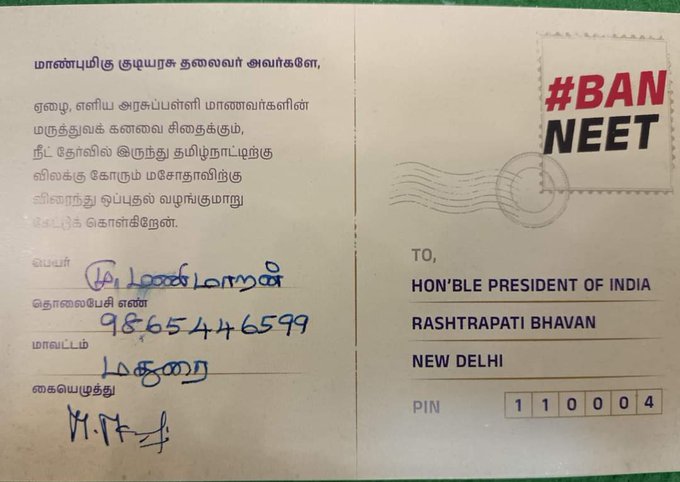 மாண்புமிகு குடியரசு தலைவர் அவர்களே,
ஏழை, எளிய அரசுப்பள்ளி மாணவர்களின்
மருத்துவக் கனவை சிதைக்கும்,
நீட் தேர்வில் இருந்து தமிழ்நாட்டிற்கு
விலக்கு கோரும் மசோதாவிற்கு
விரைந்து ஒப்புதல் வழங்குமாறு
கேட்டுக் கொள்கிறேன்.
பெயர்
மு. மணிமாறன்
தொலைபேசி எண்
9865446599
மாவட்டம்
மதுரை
கையெழுத்து
#BAN
NEET
TO,
HON'BLE PRESIDENT OF INDIA
RASHTRAPATI BHAVAN
NEW DELHI
PIN 110004